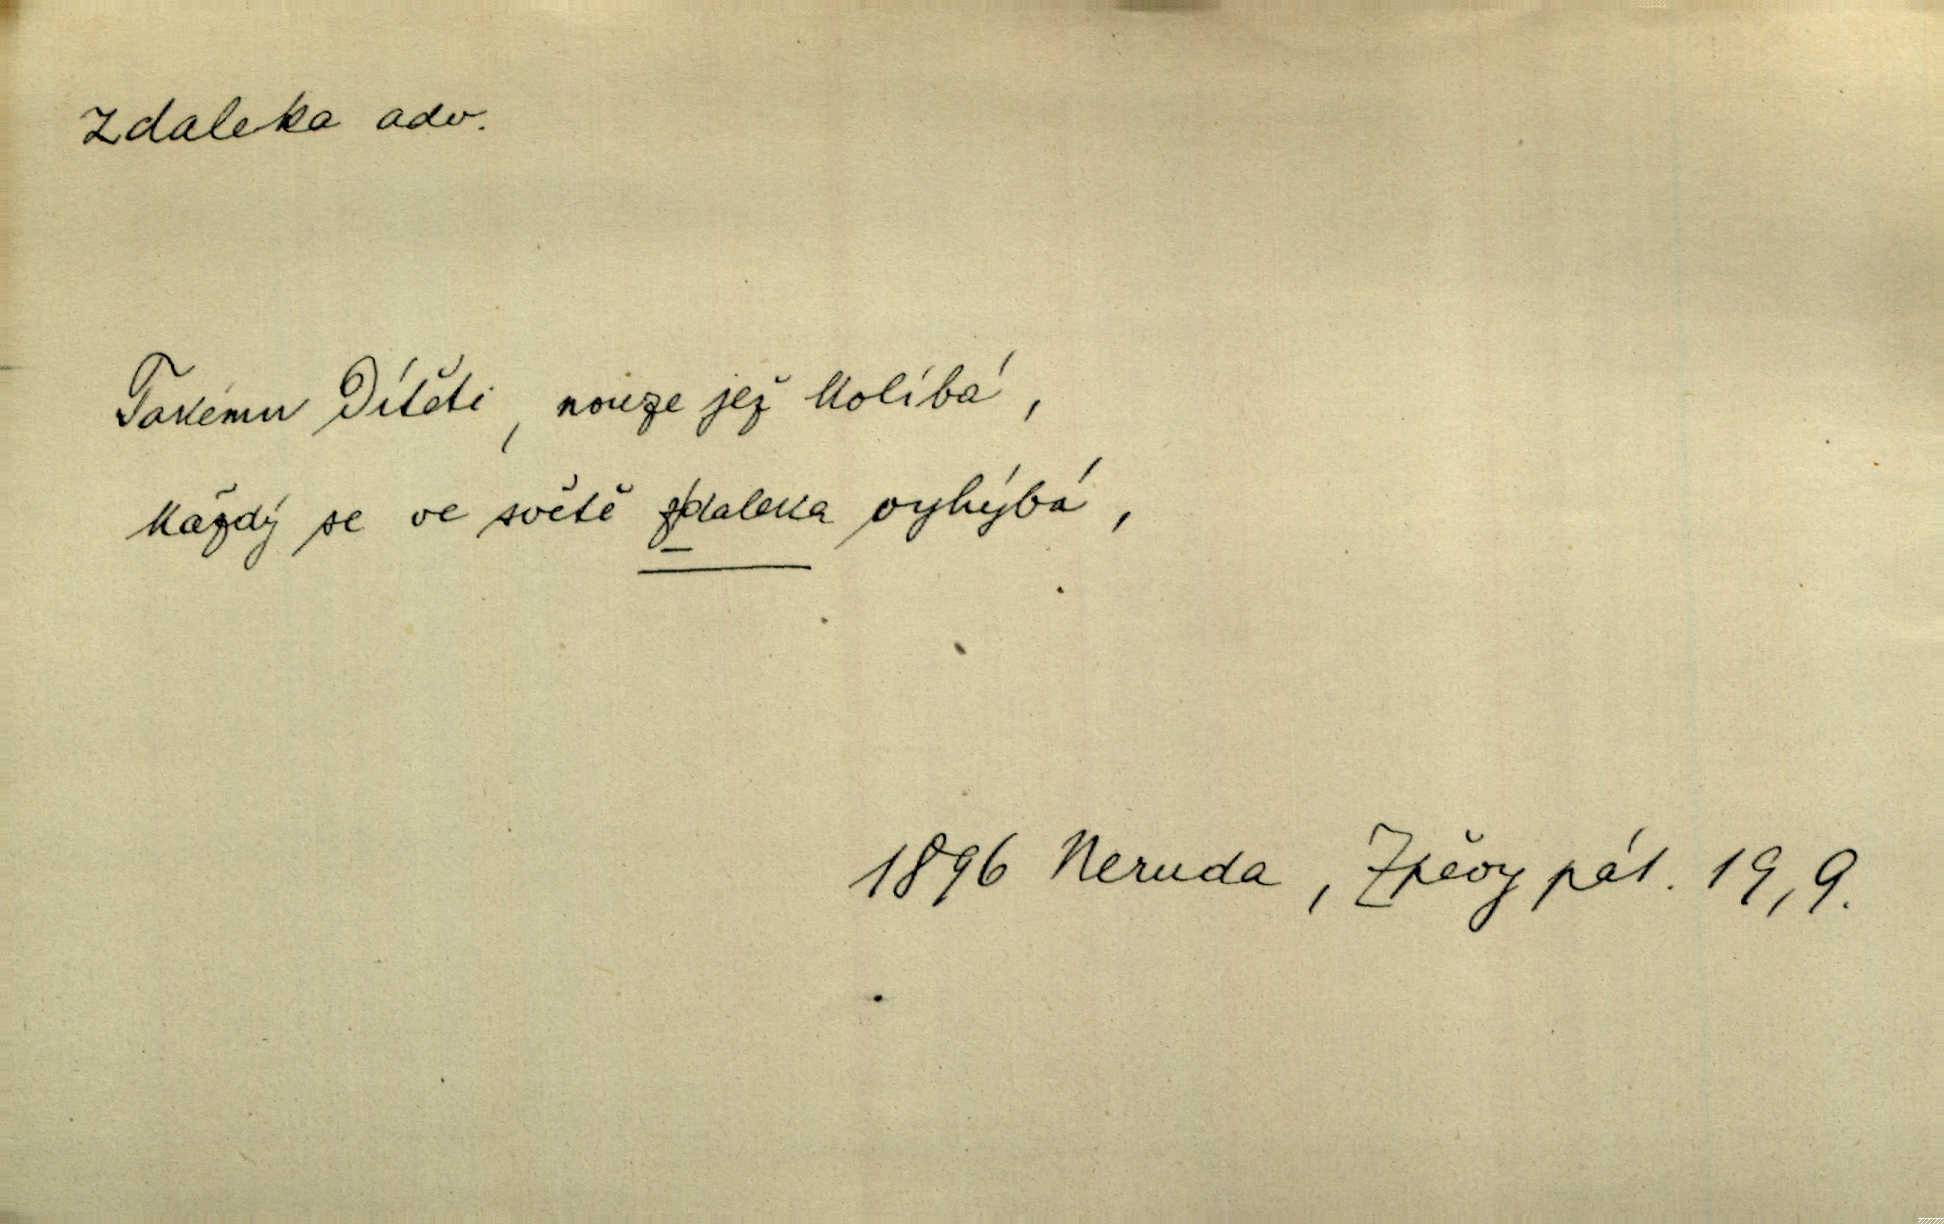 zdaleka adv.
Takému Dítěti, nouze jež kolíbá,
každý se ve světě zdaleka vyhýbá,
1896 Neruda, Zpěvy pát. 19,9.